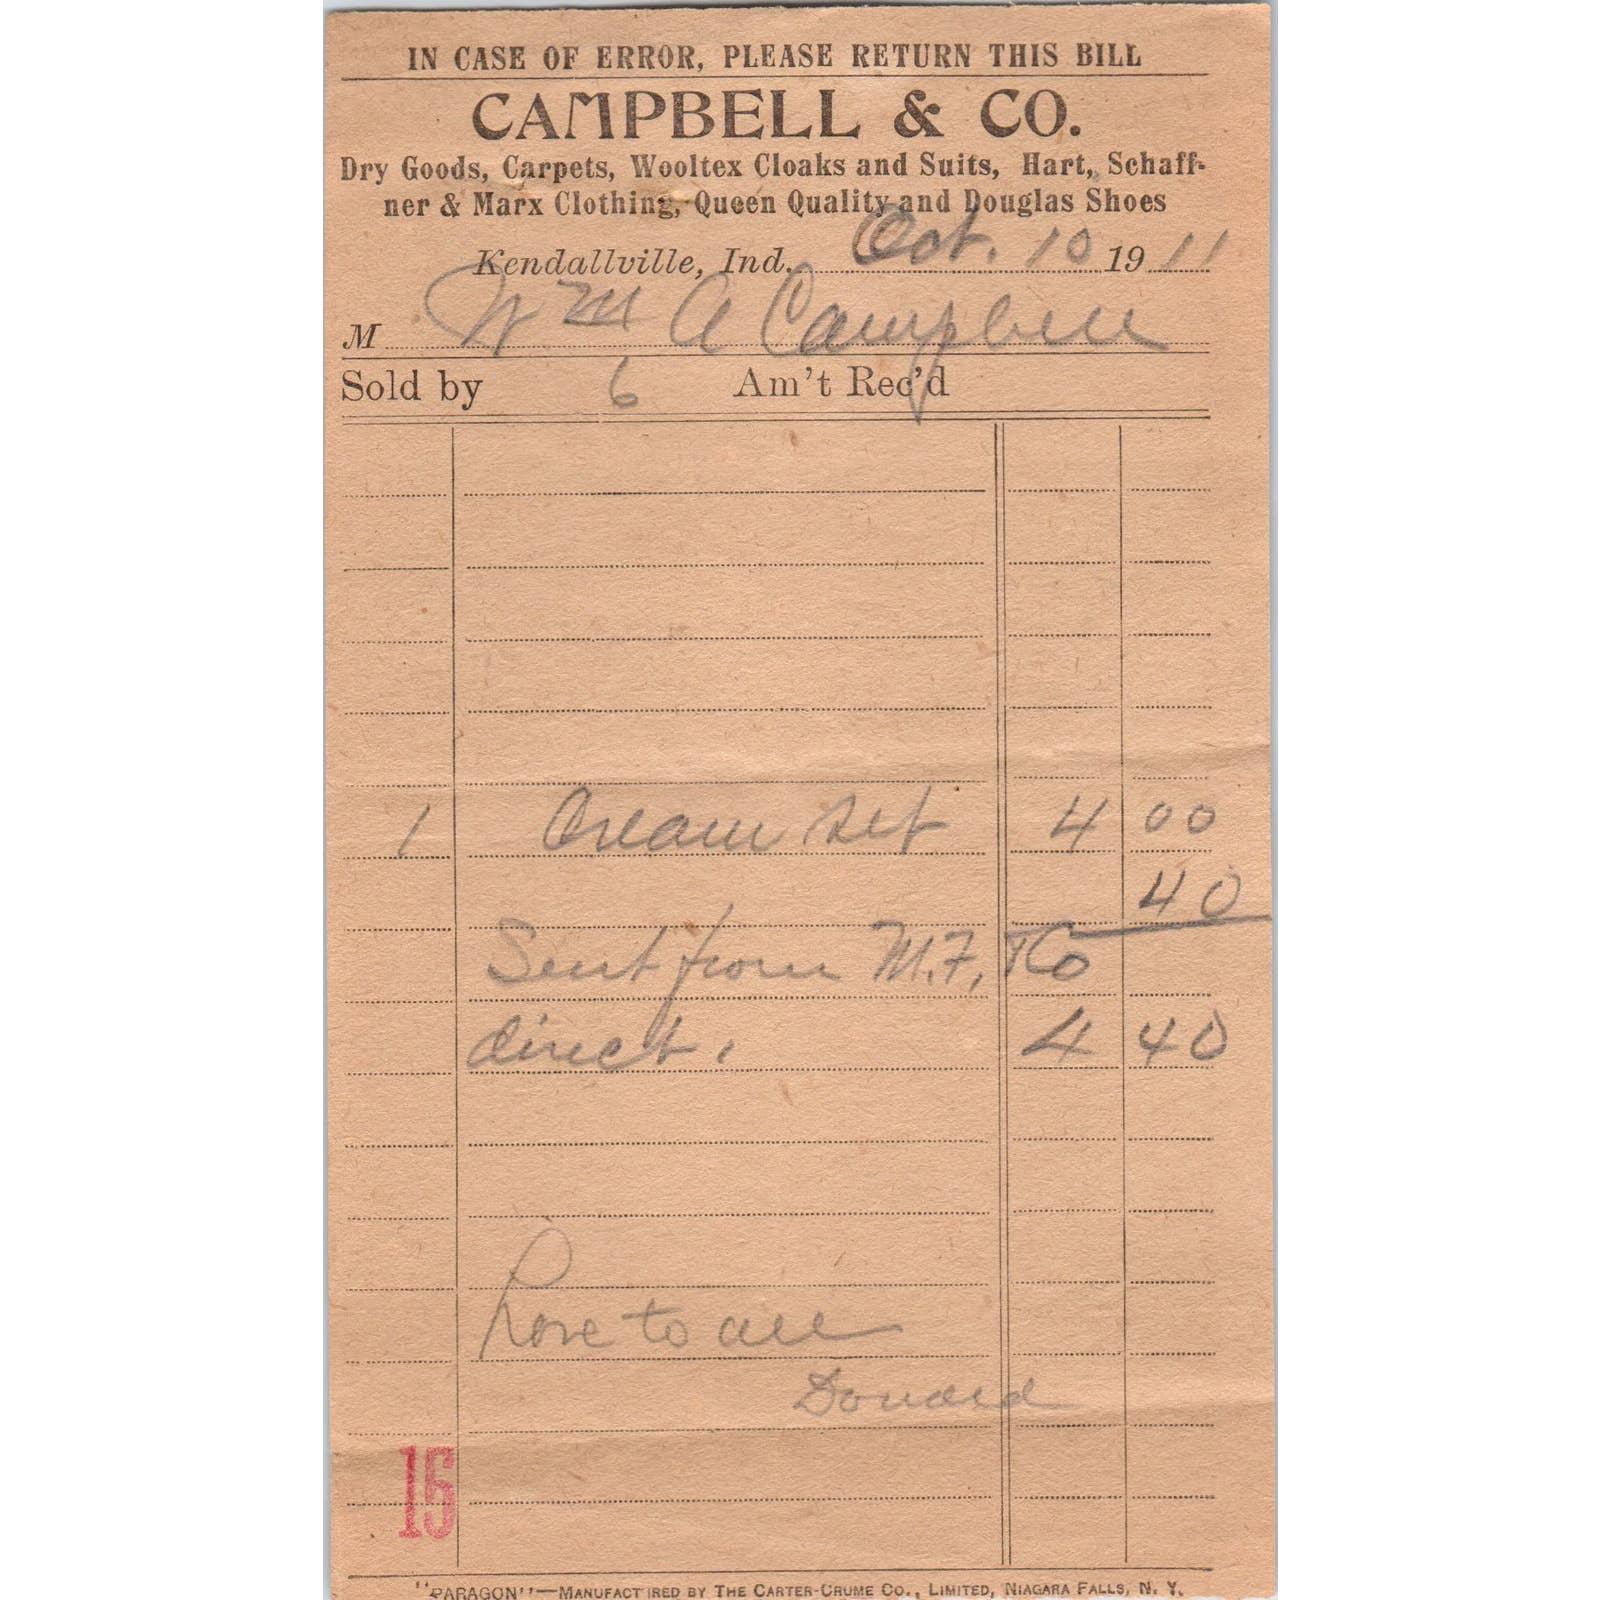 IN CASE OF ERROR, PLEASE RETURN THIS BILL
CAMPBELL & CO.
Dry Goods, Carpets, Wooltex Cloaks and Suits, Hart, Schaff-
ner & Marx Clothing, Queen Quality and Douglas Shoes
Kendallville, Ind. Oct. 10 1911
M Wm A Campbell
Sold by 6 Am't Rec'd
1 Cream set 4 00
40
Sent from M.F. & Co
direct. 4 40
Love to all
Donald
15
"PARAGON"—MANUFACTURED BY THE CARTER-CRUME CO., LIMITED, NIAGARA FALLS, N. Y.